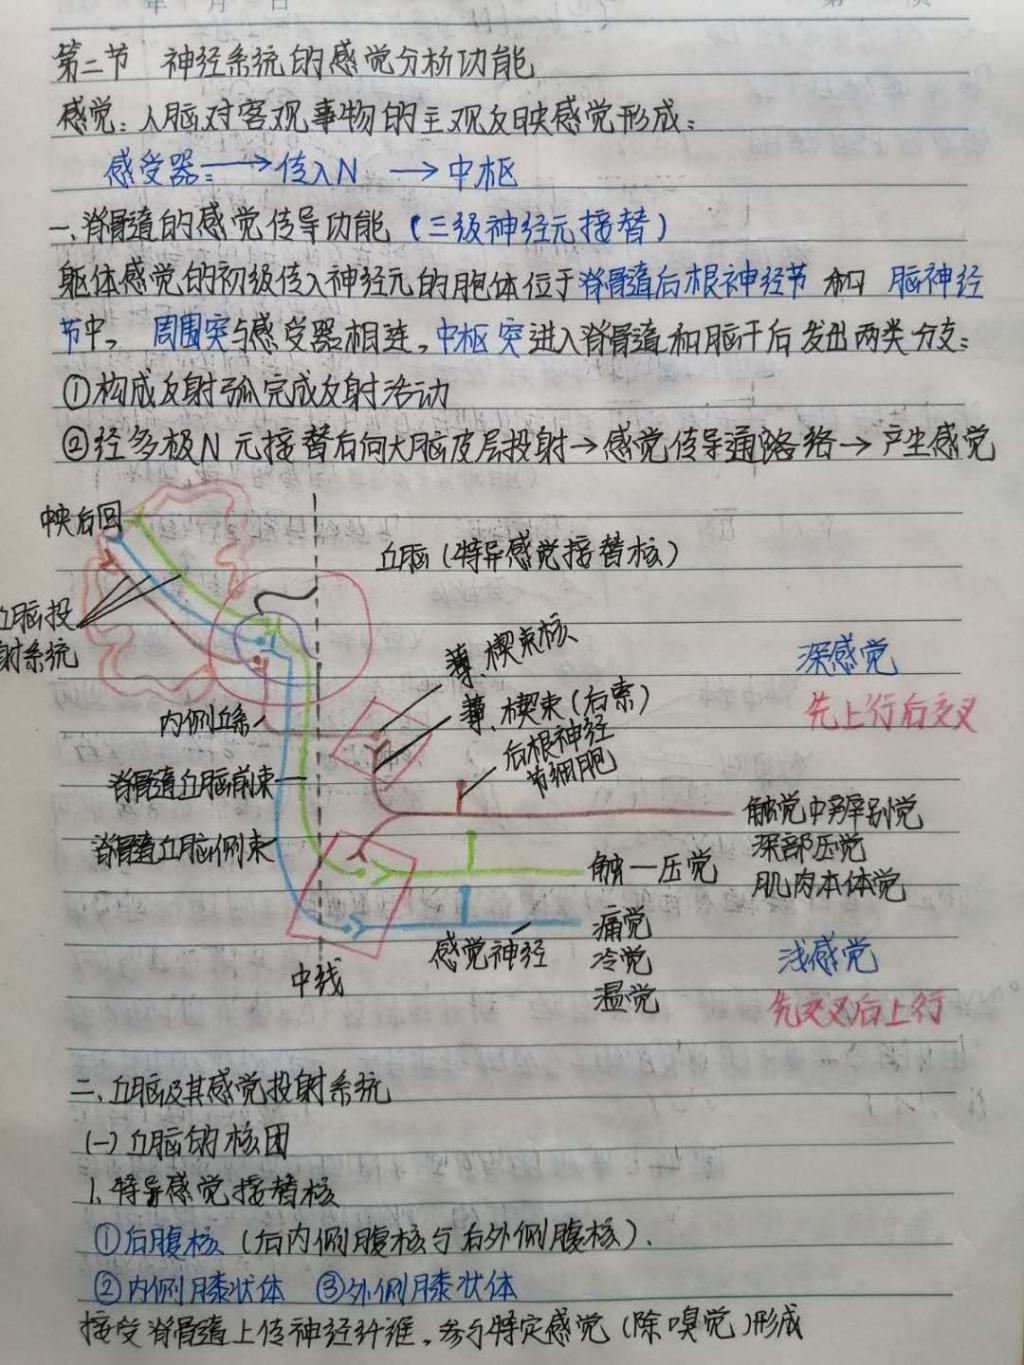 年 月 日
第二节 神经系统的感觉分析功能
感觉：人脑对客观事物的主观反映感觉形成：
感受器：→传入N →中枢
一、脊髓的感觉传导功能（三级神经元接替）
躯体感觉的初级传入神经元的胞体位于脊髓后根神经节和 脑神经
节中。周围突与感受器相连，中枢突进入脊髓和脑干后发出两类分支：
①构成反射弧完成反射活动
②经多极N元接替后向大脑皮层投射→感觉传导通路络→产生感觉
中央后回
丘脑（特异感觉接替核）
丘脑投
射系统
薄、楔束核
深感觉
先上行后交叉
内侧丘系
薄、楔束（后索）
后根神经
节细胞
脊髓丘脑前束
触觉中辨别觉
深部压觉
肌肉本体觉
脊髓丘脑侧束
触—压觉
痛觉
冷觉
温觉
感觉神经
中线
浅感觉
先交叉后上行
二、丘脑及其感觉投射系统
(一)丘脑的核团
1、特异感觉接替核
①后腹核（后内侧腹核与后外侧腹核）.
②内侧膝状体 ③外侧膝状体
接受脊髓上传神经纤维，参与特定感觉（除嗅觉）形成